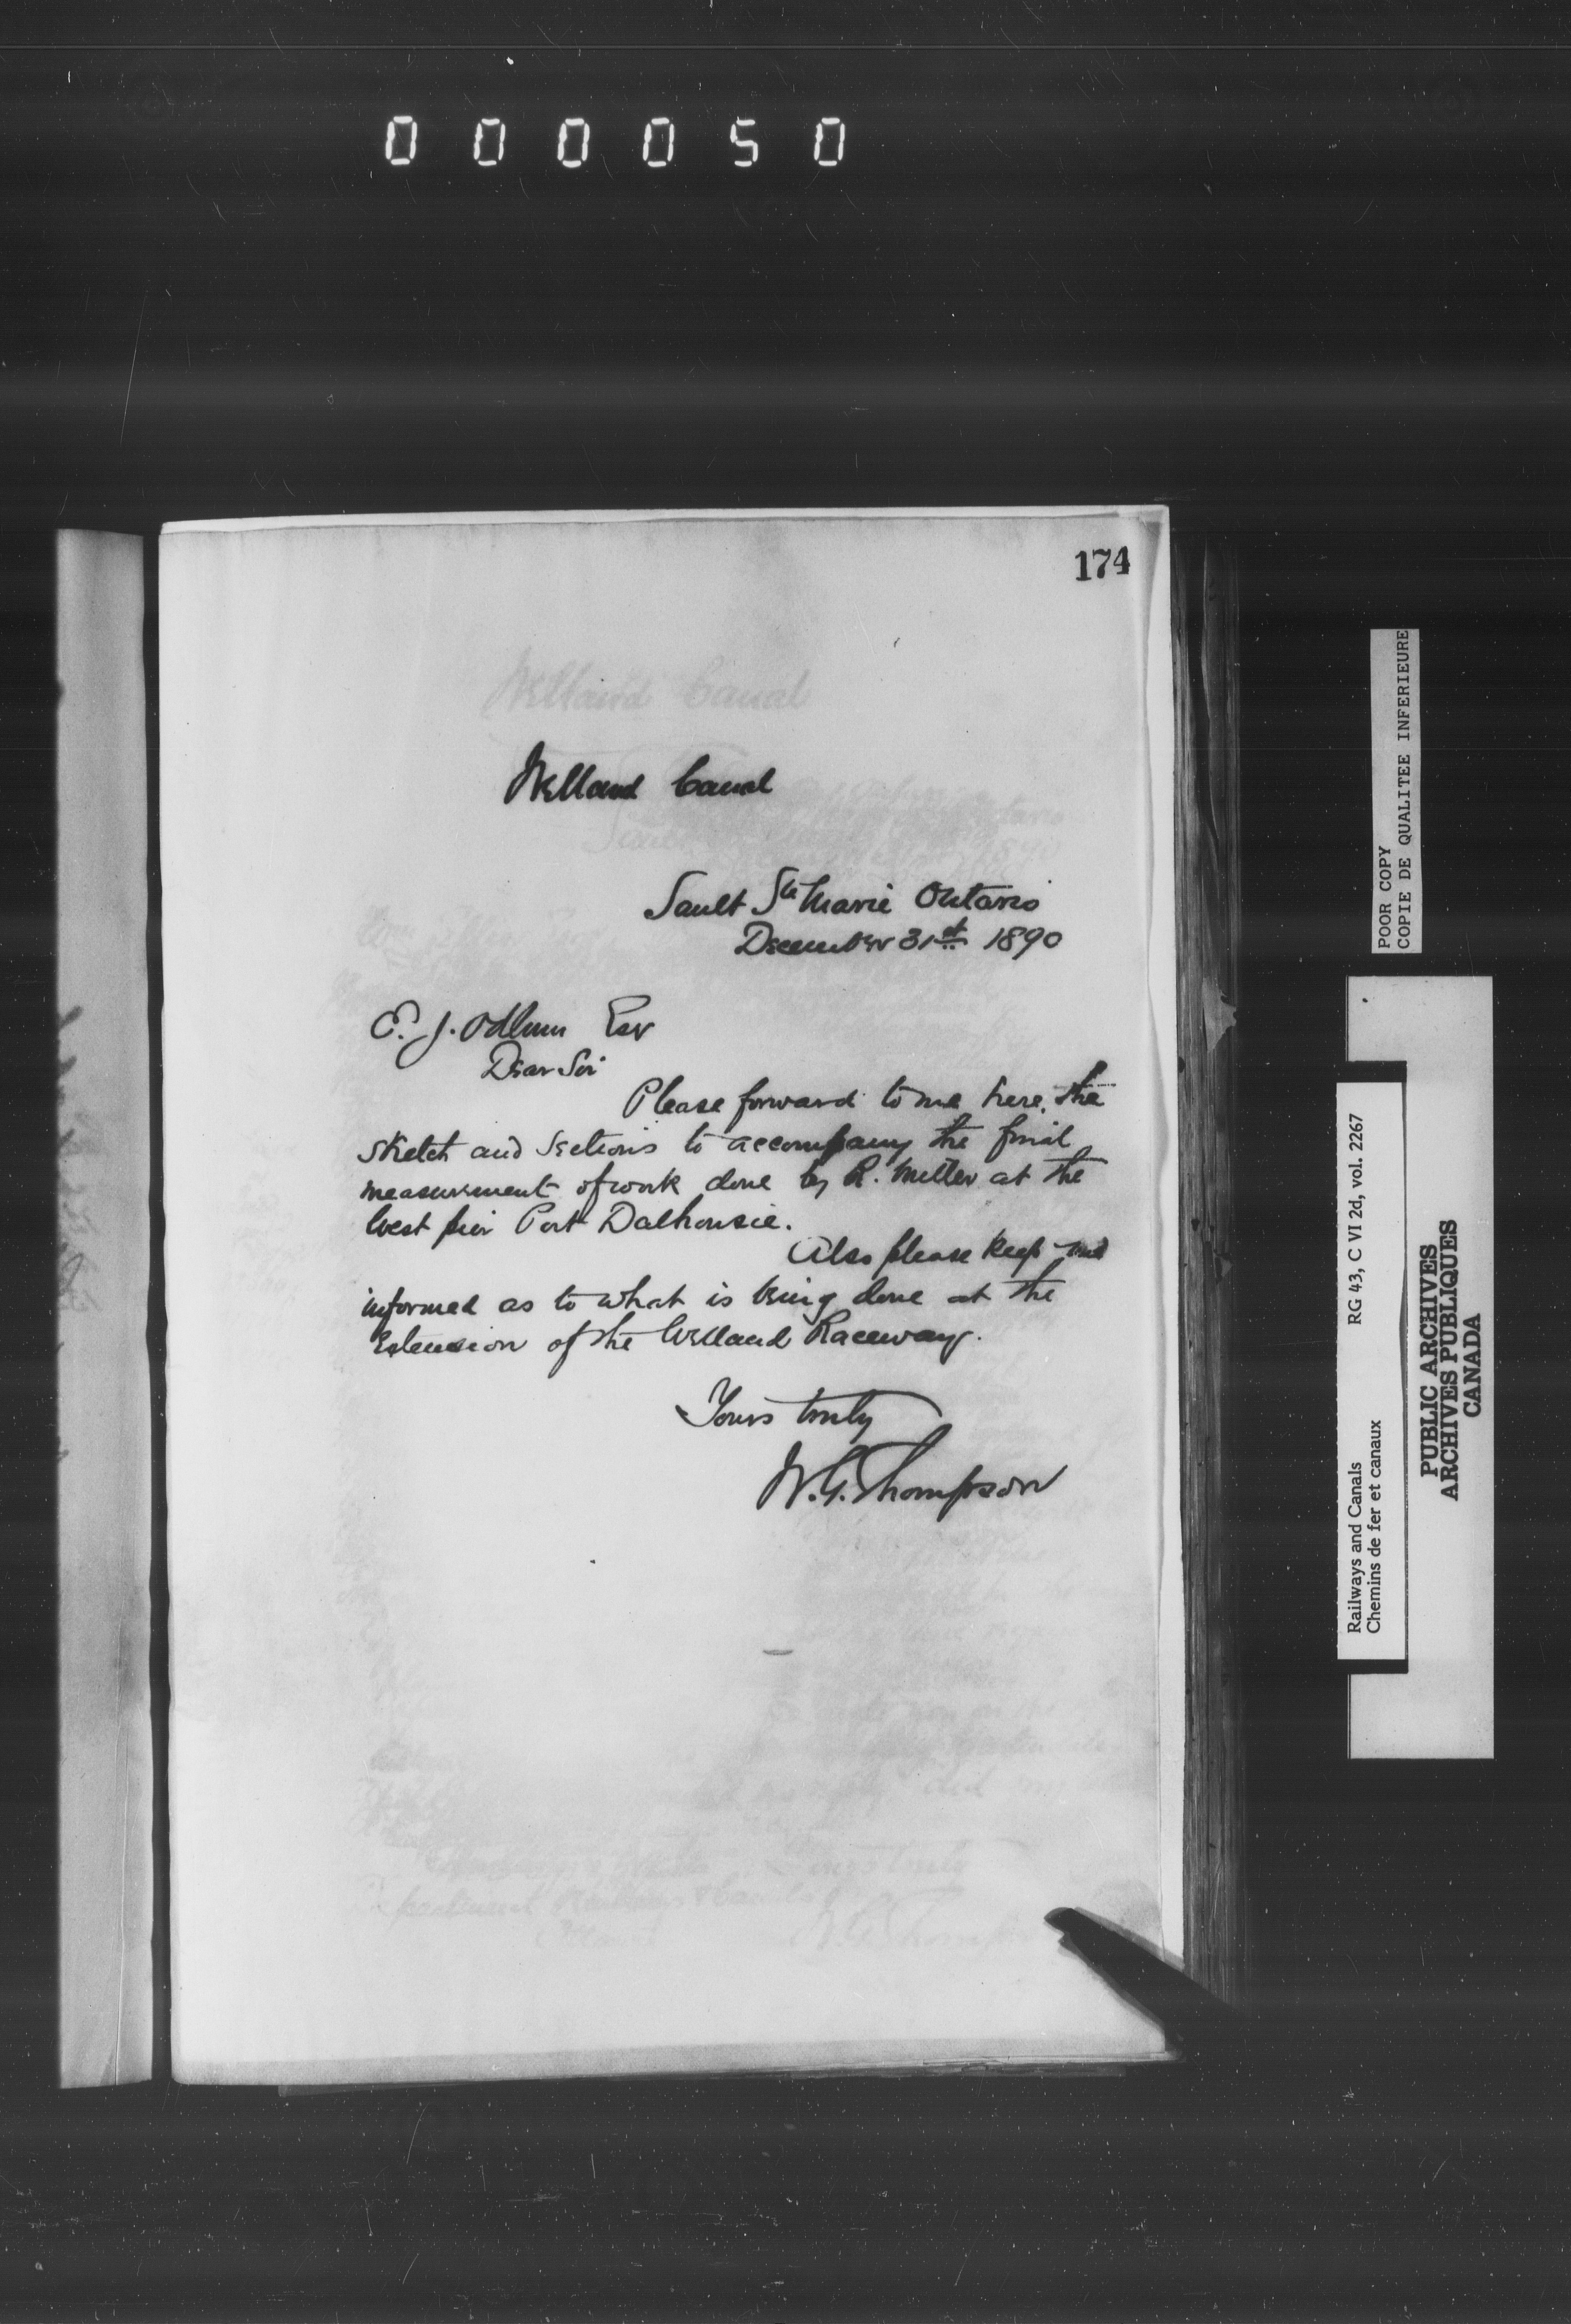 000050
174
Welland Canal
Welland Canal
Sault Ste Marie Ontario
December 31st 1890
E. J. Odlum Esq
Dear Sir
Please forward to me here, the
sketch and sections to accompany the final
measurement of work done by R. Miller at the
West pier Port Dalhousie.
Also please keep me
informed as to what is being done at the
Extension of the Welland Raceway.
Yours truly
W.G. Thompson
POOR COPY
COPIE DE QUALITEE INFERIEURE
Railways and Canals RG 43, C VI 2d, vol. 2267
Chemins de fer et canaux
PUBLIC ARCHIVES
ARCHIVES PUBLIQUES
CANADA